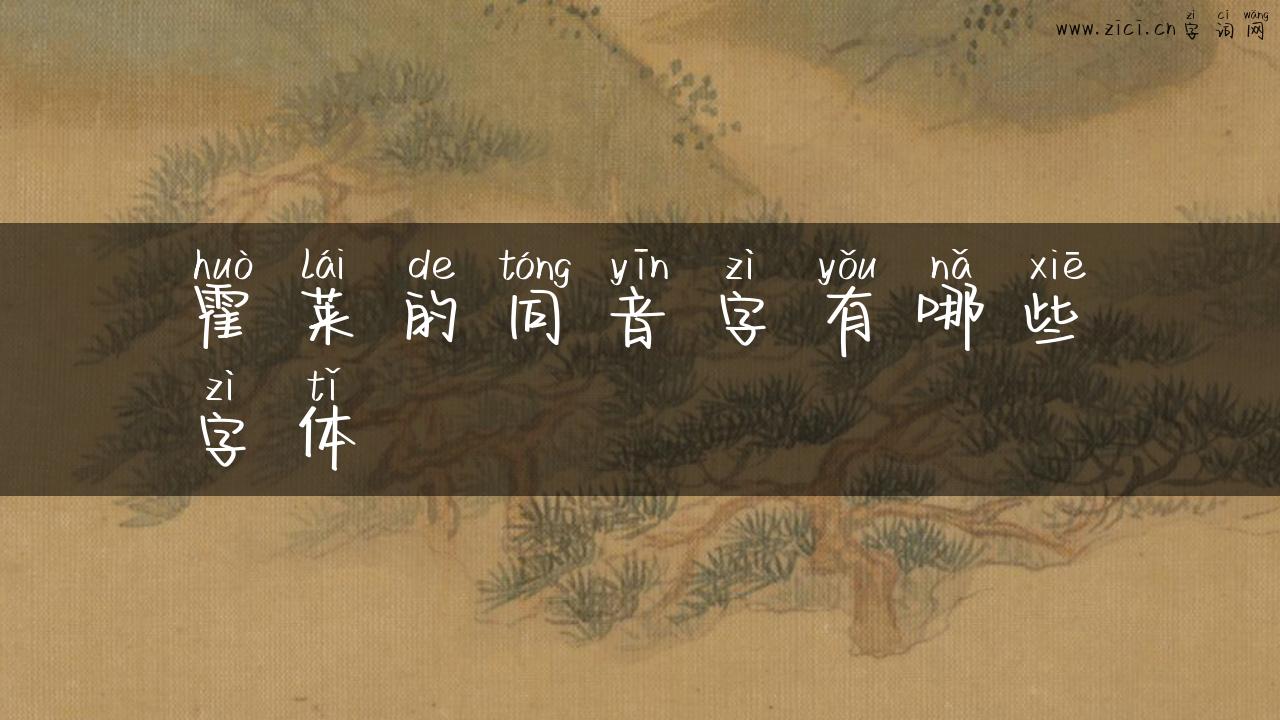 zì cí wǎng
www.zici.cn 字 词 网
huò lái de tóng yīn zì yǒu nǎ xiē
霍 莱 的 同 音 字 有 哪 些
zì tǐ
字 体